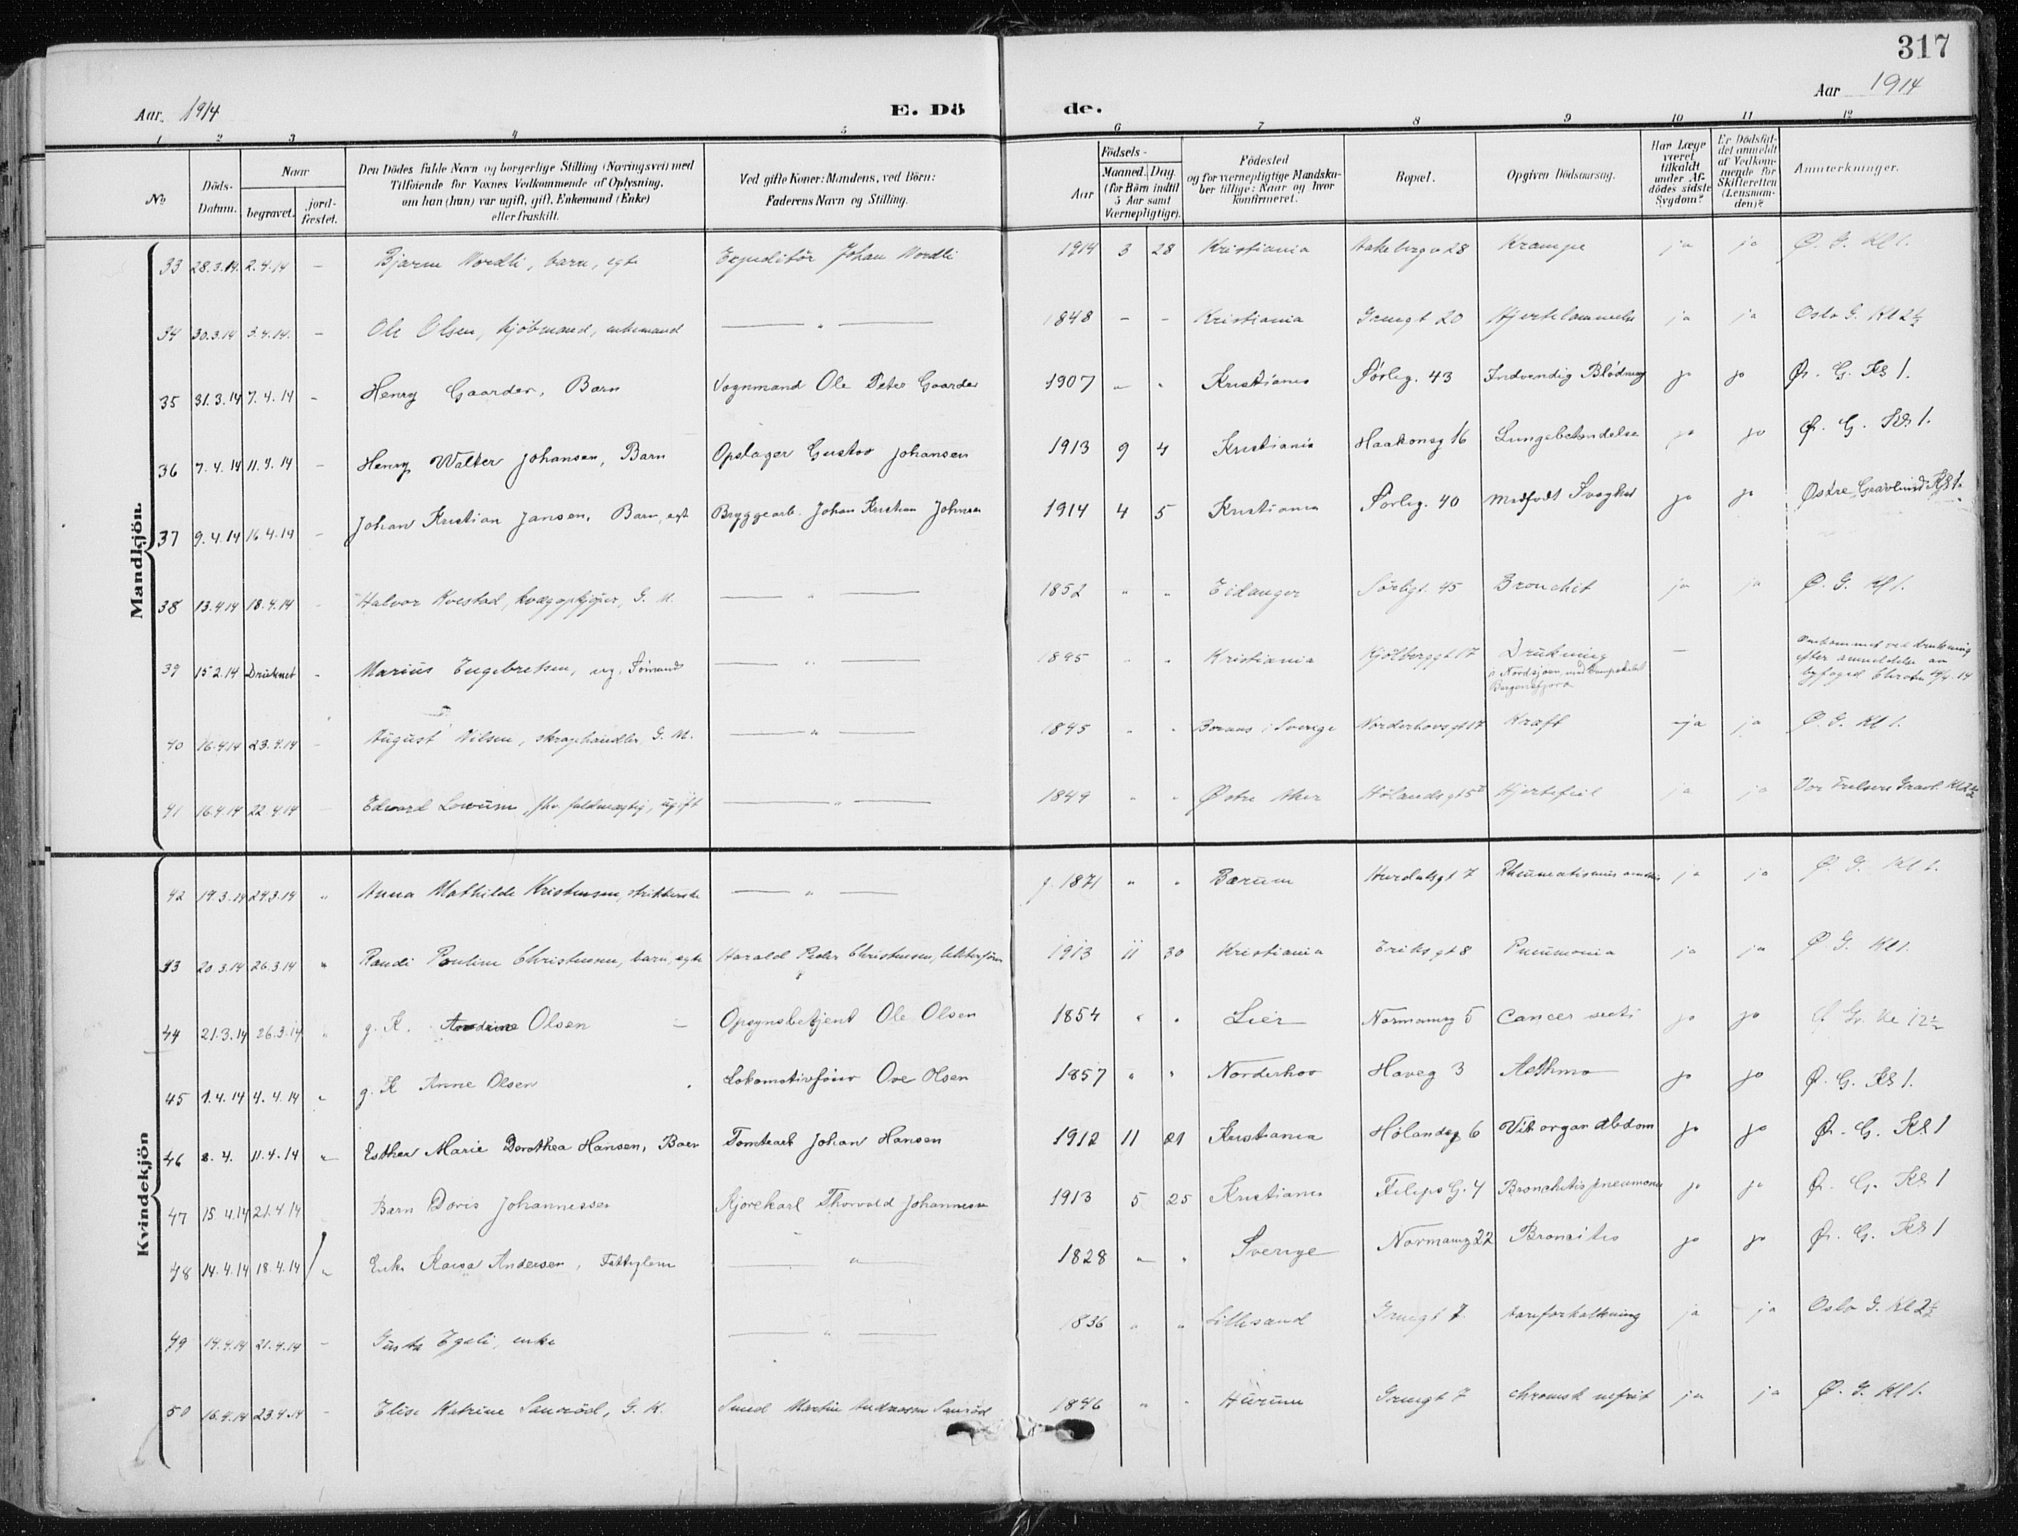 317
Aar 1914
E. Dö
de.
Aar 1914
1 2 3 4 5 6 7 8 9 10 11 12
No
Döds-Datum.
Naar
begravet.
jord-fæstet.
Den Dödes fulde Navn og borgerlige Stilling (Næringsvei) med
Tilföiende for Voxnes Vedkommende af Oplysning,
om han (hun) var ugift, gift, Enkemand (Enke)
eller fraskilt.
Ved gifte Koner: Mandens, ved Börn:
Faderens Navn og Stilling.
Födsels-
Aar
Maaned. Dag.
(for Börn indtil
5 Aar samt
Værnepligtige).
Födested
og for værnepligtige Mandska-
ber tillige: Naar og hvor
konfirmeret.
Bopæl.
Opgiven Dödsaarsag.
Har Læge
været
tilkaldt
under Af-
dödes sidste
Sygdom?
Er Dödsfal-
det anmeldt
af Vedkom-
mende for
Skifteretten
(Lensman-
den)?
Anmærkninger.
Mandkjön.
33 28.3.14 2.4.14 – Bjarne Nordli, barn, egte Expeditör Johan Nordli 1914 3 28 Kristiania Hakebergv 28 Krampe ja ja Ø. G. Kl 1.
34 30.3.14 3.4.14. – Ole Olsen, kjöbmand, enkemand — " — 1848 – – Kristiania Grungt 20 Hjertelammelse ja ja Oslo G. Kl 2½
35 31.3.14 7.4.14 – Henry Gaarder, Barn Vognmand Ole Peter Gaarder 1907 – " Kristiania Sörlig. 43 Indvendig Blödning ja ja Ø. G. Kl 1.
36 7.4.14 11.4.14 – Henry Walter Johansen, Barn Opslager Gustav Johansen 1913 9 4 Kristiania Haakonsg 16 Lungebetændelse ja ja Ø. G. Kl 1.
37 9.4.14 16.4.14 – Johan Kristian Jansen, Barn, egt Bryggearb. Johan Kristian Johnsen 1914 4 5 Kristiania Sörlig. 40 Medfödt Svaghet ja ja Østre Gravlund Kl 1.
38 13.4.14 18.4.14 – Halvor Kvestad, kvægopkjöper, G. M. — " — 1852 " " Eidanger Sörligt. 45 Bronchit ja ja Ø. G. Kl 1.
39 15.2.14 Druknet – Marius Engebretsen, ug. Sömand — " — 1895 " " Kristiania Kjölberggt 17 Drukning —
i Nordsjöen med
Bergensfjord
Omkommet ved drukning
efter anmeldelse av
byfoged
40 16.4.14 23.4.14 – August Nilsen, skraphandler, G. M. — " — 1845 " " Boraas i Sverige Norderhovsgt 17 Kræft ja ja Ø. G. Kl 1.
41 16.4.14 22.4.14 Edvard Lowum, fhv. fuldmægtig, ugift — " — 1849 " " Østre Aker Hølandsgt 5 Hjertefeil ja ja Vor Frelsers Gravl. Kl 2½
Kvindekjön
42 19.3.14 24.3.14 " Anna Mathilde Kristensen, strikkerske — " — g. 1871 " " Bærum Hurdalsgt 7 Rheumatismus ja ja Ø. G. Kl 1.
43 20.3.14 26.3.14 " Randi Pauline Christensen, barn, egte Harald Peder Christensen, 1913 11 30 Kristiania Eriksgt 8 Pneumonia ja ja Ø. G. Kl 1.
44 21.3.14 26.3.14 " g. K. Andrine Olsen – Opsynsbetjent Ole Olsen 1854 " " Lier Normannsg 5 Cancer recti ja ja Ø Gr. Kl 12½
45 1.4.14 4.4.14 " g. K Anne Olsen Lokomotivförer Ove Olsen 1857 " " Norderhov Haveg 3 Asthma ja ja Ø. G. Kl 1.
46 8.4. 11.4.14 " Esther Marie Dorothea Hansen, Barn Tomtearb Johan Hansen 1912 11 21 Kristiania Hölandsg 6 Vit organ Abdom ja ja Ø. G. Kl 1
47 15.4.14 21.4.14 Barn Doris Johannessen Kjörekarl Thorvald Johannessen 1913 5 25 Kristiania Filips G. 4 Bronchitis pneumoni ja ja Ø. G. Kl 1
48 14.4.14 18.4.14 " Enke Kaisa Andersen, Fattiglem — " — 1828 " " Sverige Normannsg 22 Broncitis ja ja Ø. G. Kl 1
49 14.4.14 21.4.14 – Gusta Egeli, enke — " — 1836 " " Lillesand Grungt 7 Aareforkalkning ja ja Oslo G. Kl 2½
50 16.4.14 23.4.14 – Elise Katrine Sanröd, G. K. Smed Martin Andreasen Sanröd 1846 " " Hurum Grungt 7 chronisk nefrit ja ja Ø. G. Kl 1.